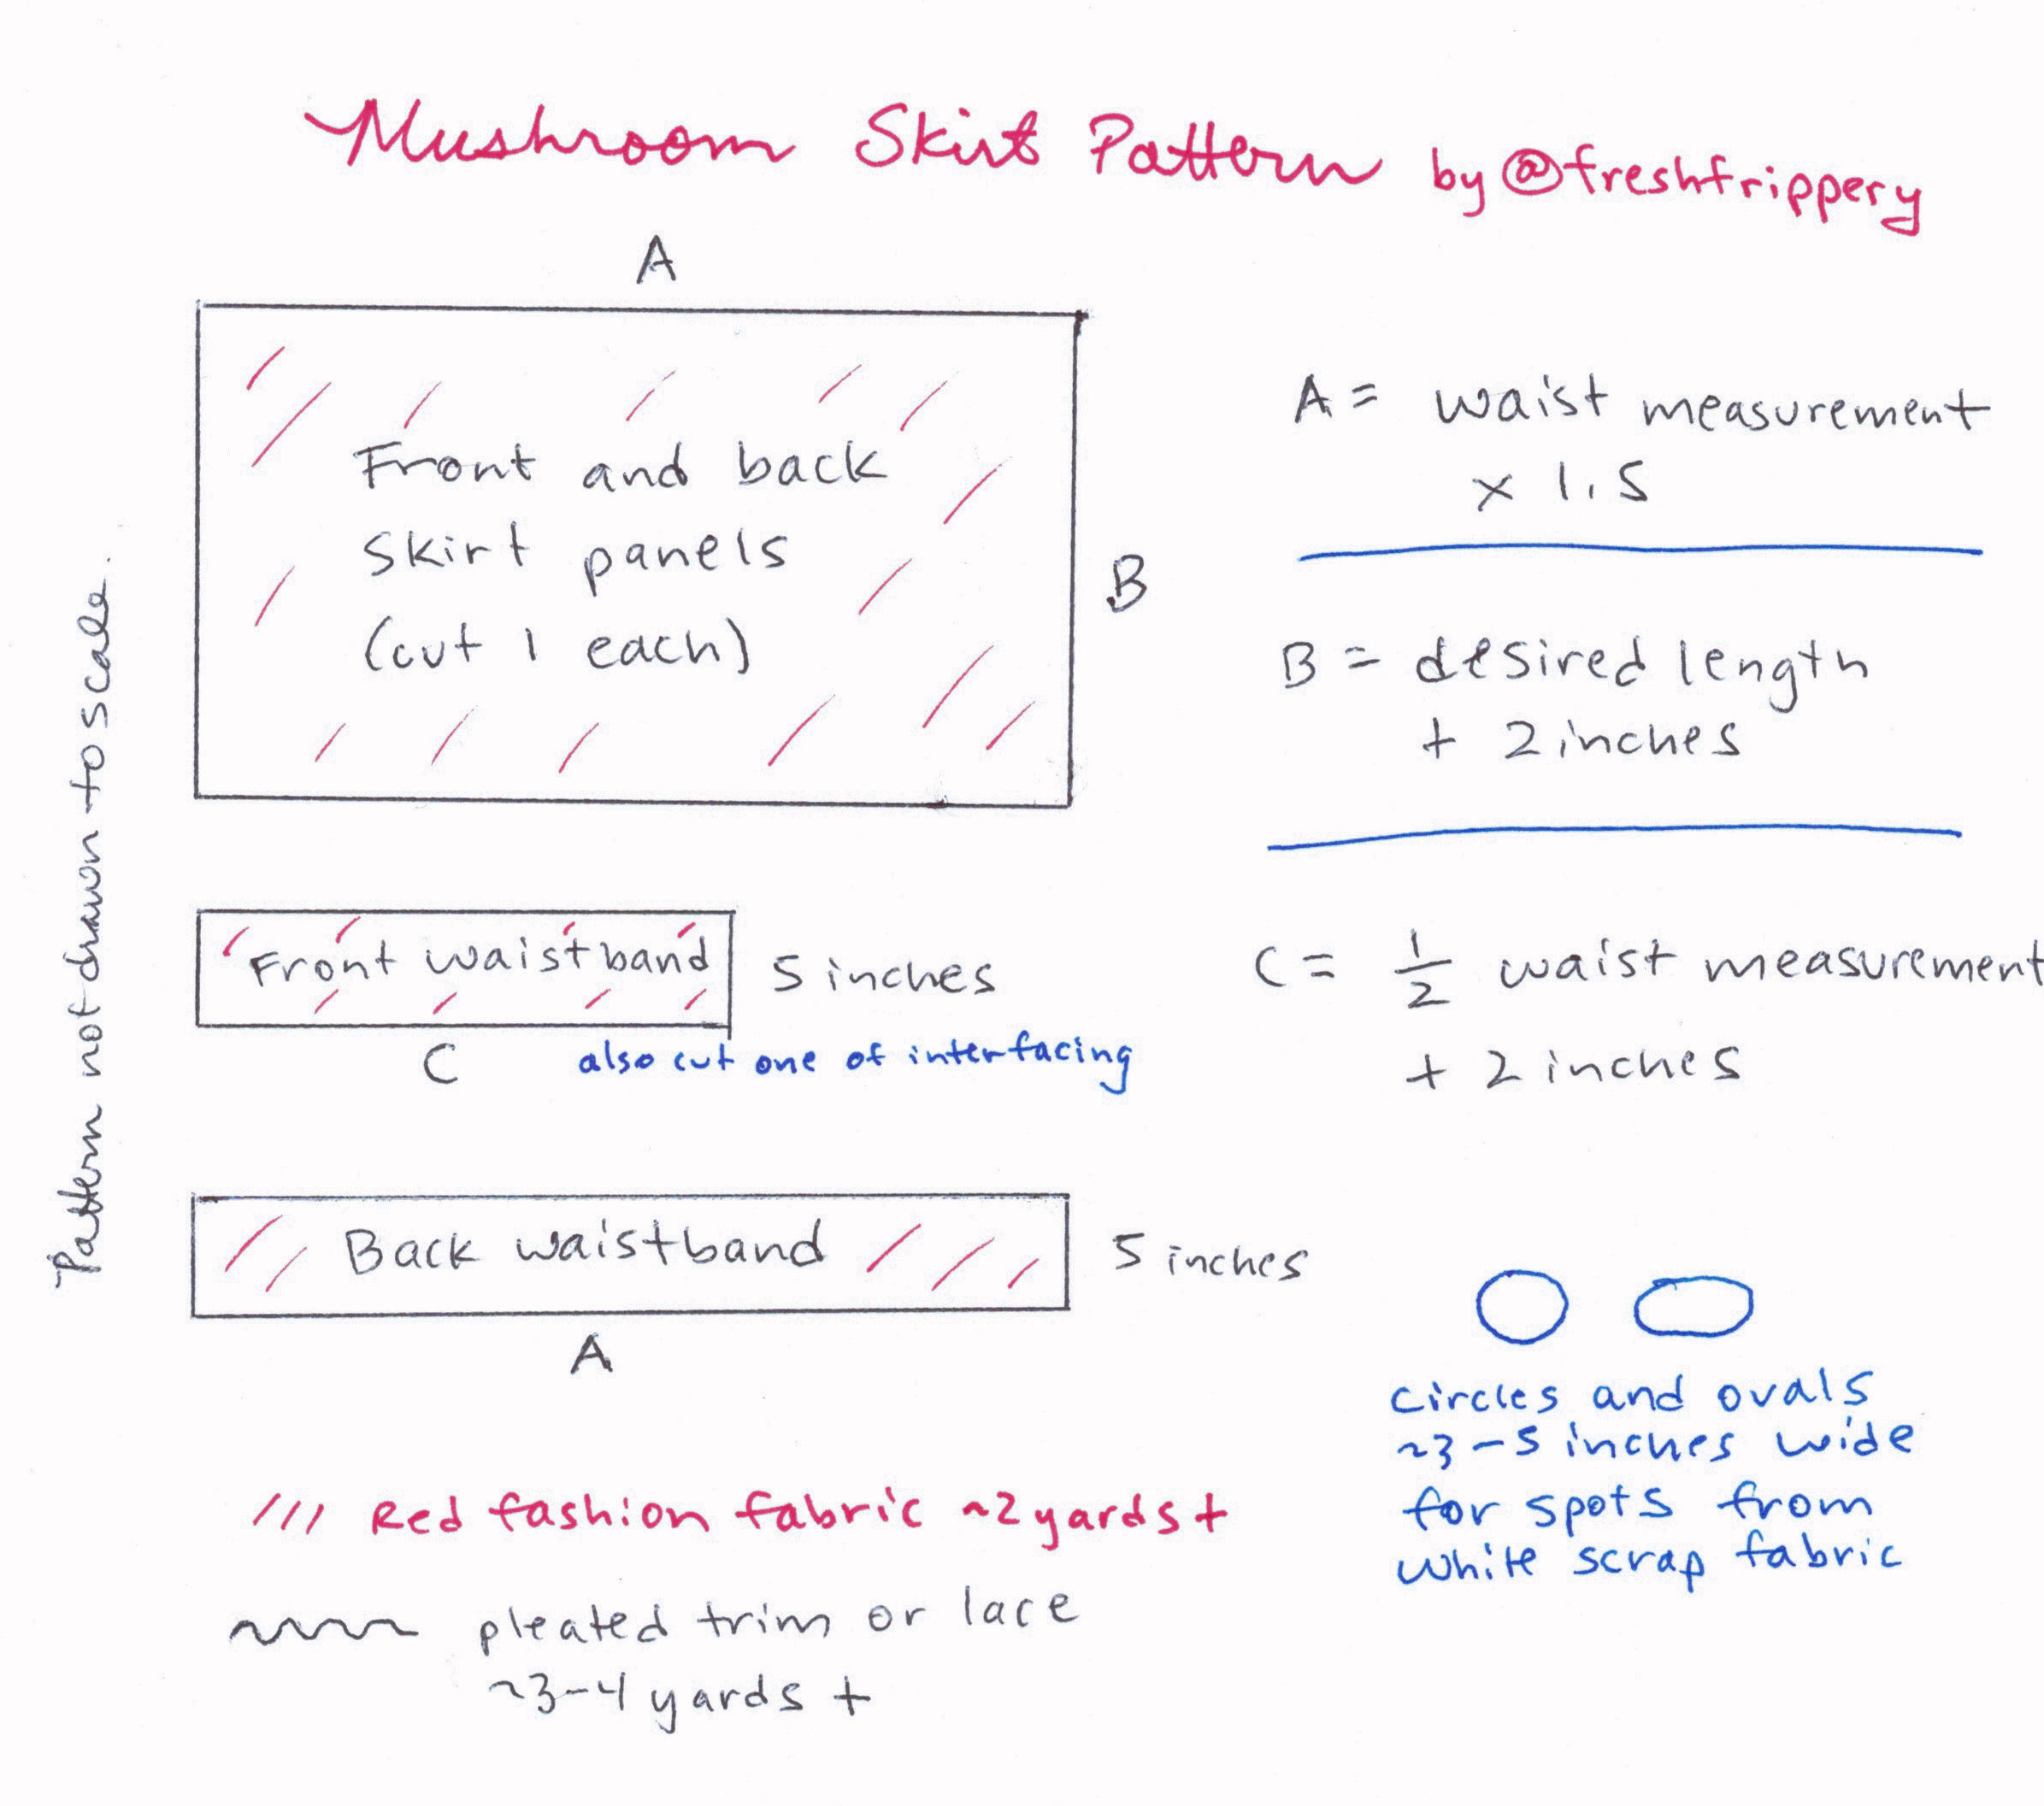 Mushroom Skirt Pattern by @freshfrippery
A
Front and back
skirt panels
(cut 1 each)
B
A = waist measurement
x 1.5
B = desired length
+ 2 inches
Front waistband
5 inches
C
also cut one of interfacing
C = 1/2 waist measurement
+ 2 inches
Back waistband
5 inches
A
Pattern not drawn to scale.
circles and ovals
~3-5 inches wide
for spots from
white scrap fabric
/// Red fashion fabric ~2 yards +
pleated trim or lace
~3-4 yards +